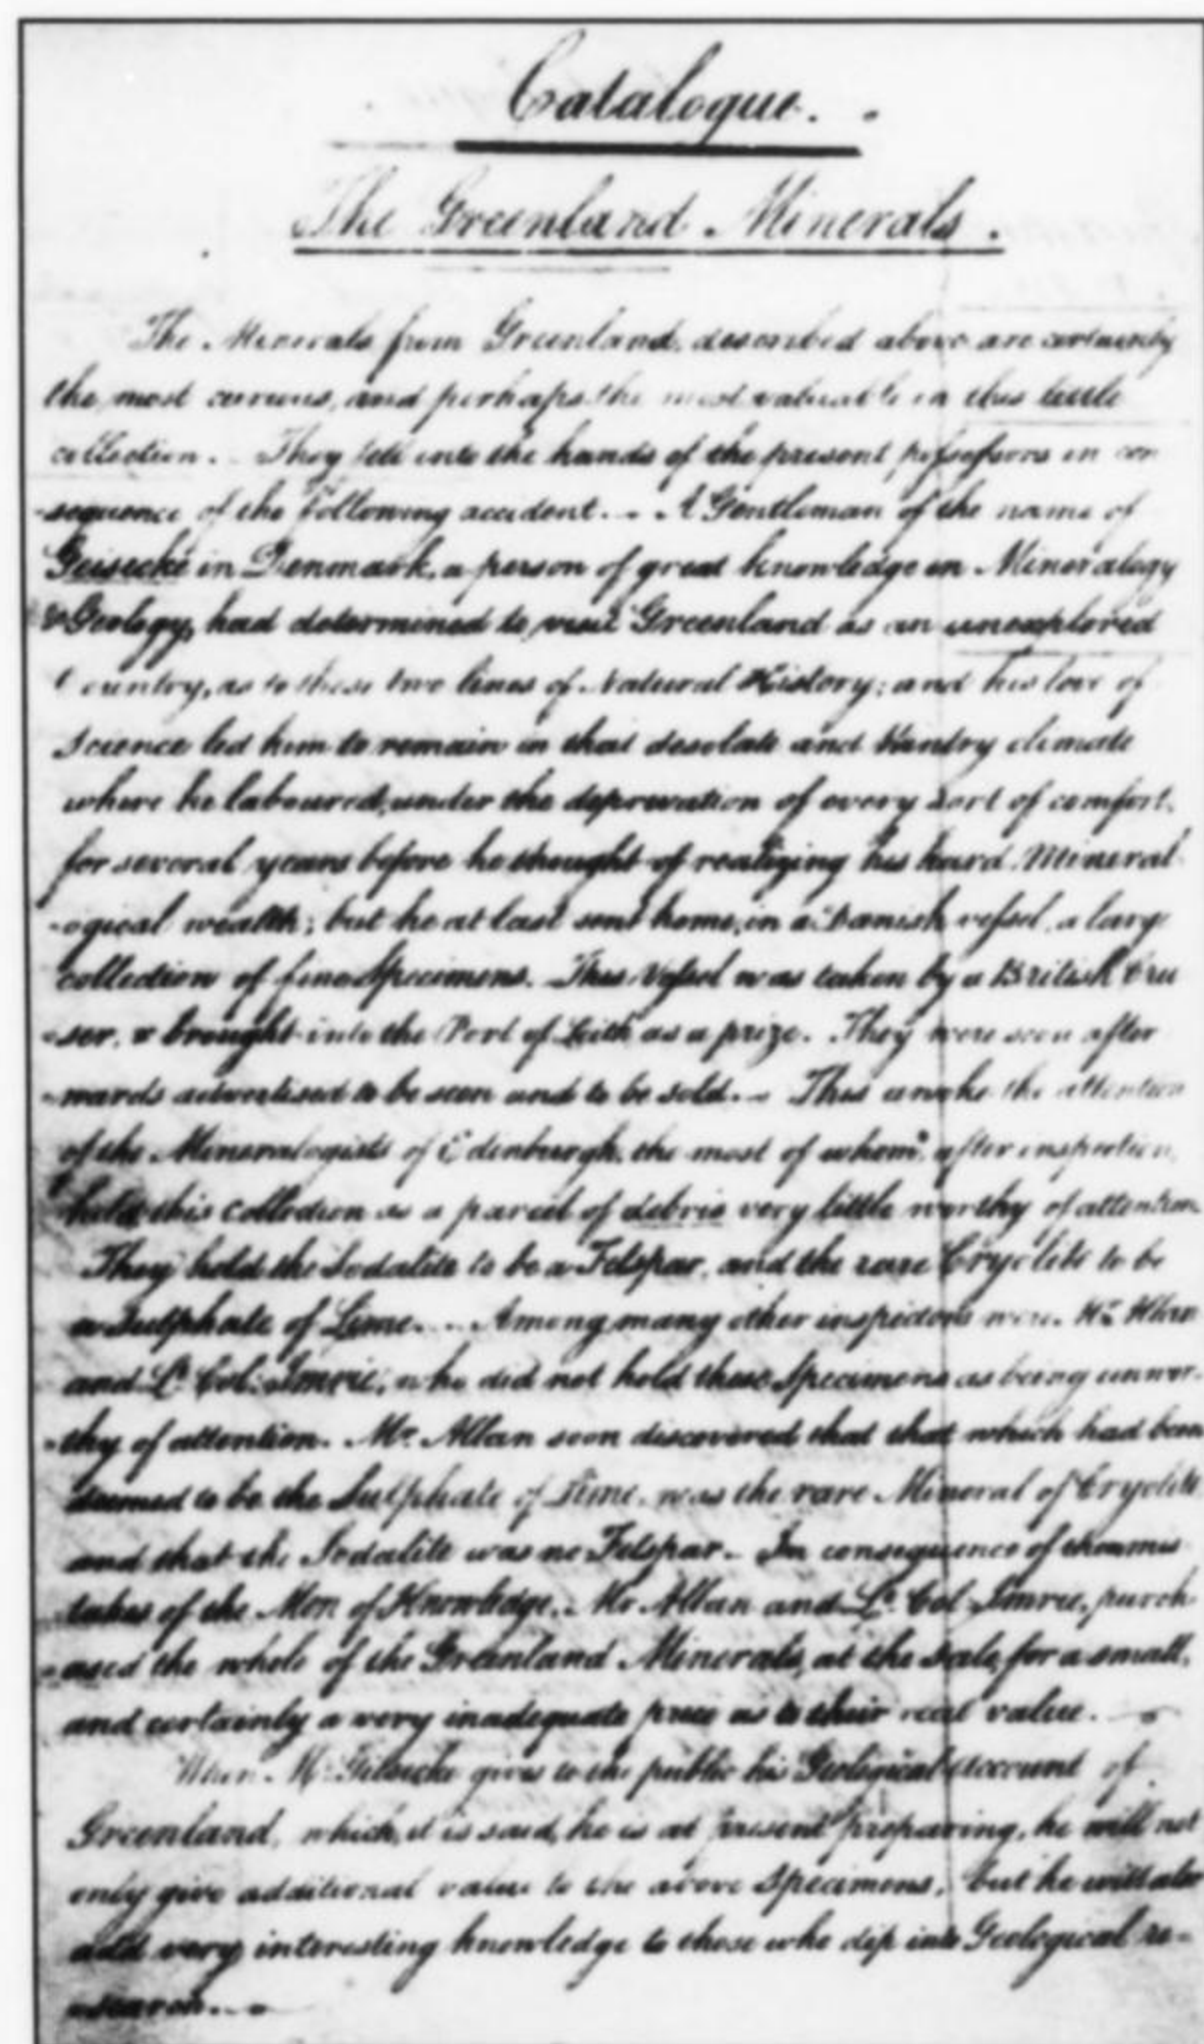 Catalogue.
The Greenland Minerals.
The Minerals from Greenland, described above are certainly
the most curious, and perhaps the most valuable in this little
collection. They fell into the hands of the present possessors in con
-sequence of the following accident. - A Gentleman of the name of
Geisecké in Denmark, a person of great knowledge in Mineralogy
& Geology, had determined to visit Greenland as an unexplored
Country, as to these two lines of Natural History; and his love of
Science led him to remain in that desolate and climate
where he laboured, under the deprivation of every sort of comfort,
for several years before he thought of realizing his hard Mineral
-ogical wealth; but he at last sent home, in a Danish vessel, a large
collection of fine Specimens. This Vessel was taken by a British Crui
-ser, & brought into the Port of Leith as a prize. They were soon after
-wards advertised to be seen and to be sold. - This awoke the attention
of the Mineralogists of Edinburgh, the most of whom, after inspection,
held this collection as a parcel of debris very little worthy of attention.
They held the Sodalite to be a Felspar, and the rare Cryolite to be
a Sulphate of Lime. - Among many other inspectors were Mr. Allan
and Lt. Col. Imrie, who did not hold these Specimens as being unwor-
-thy of attention. Mr. Allan soon discovered that that which had been
deemed to be the Sulphate of Lime, was the rare Mineral of Cryolite
and that the Sodalite was no Felspar. - In consequence of these mis
takes of the Men of Knowledge, Mr. Allan and Lt. Col. Imrie, purch
-ased the whole of the Greenland Minerals, at the Sale, for a small,
and certainly a very inadequate price as to their real value.
When Mr. Giesecke gives to the public his Geological account of
Greenland, which, it is said, he is at present preparing, he will not
only give additional value to the above Specimens, but he will also
add very interesting knowledge to those who dip into Geological re-
-search.